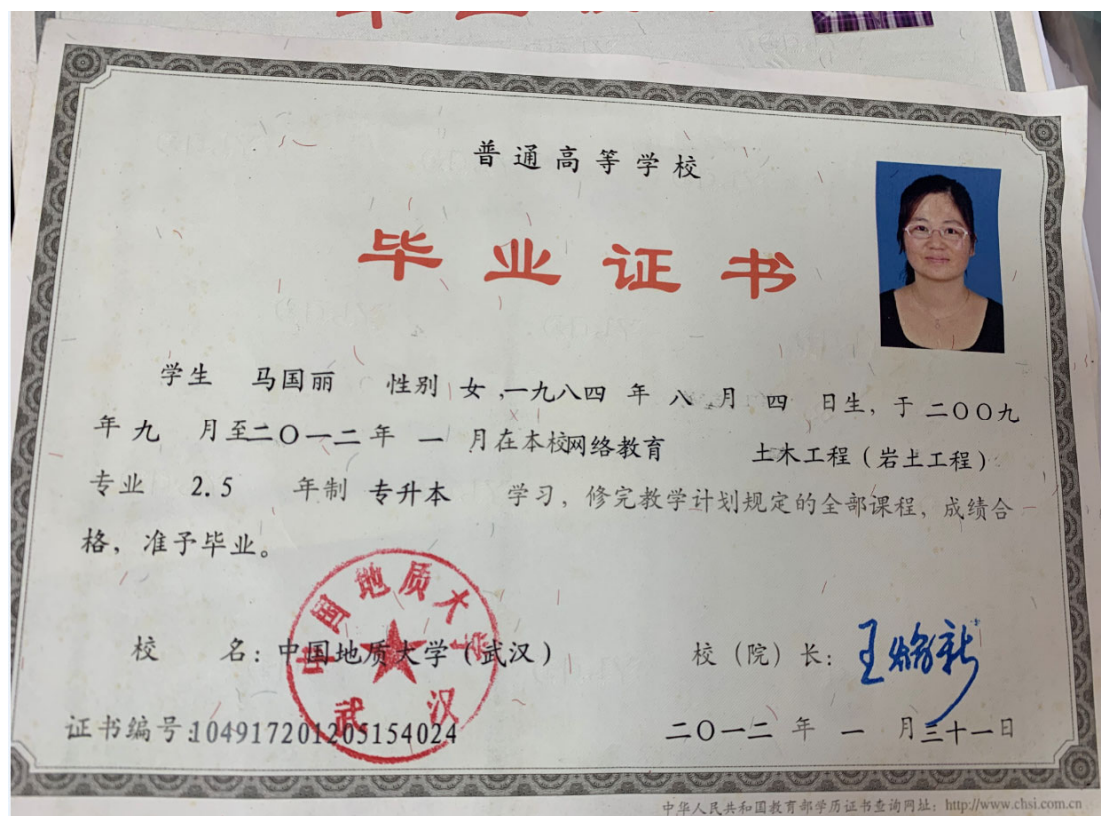 普通高等学校
毕业证书
学生 马国丽 性别 女，一九八四 年 八 月 四 日生，于 二〇〇九
年 九 月至二〇一二年 一 月在本校网络教育 土木工程（岩土工程）
专业 2.5 年制 专升本 学习，修完教学计划规定的全部课程，成绩合
格，准予毕业。
中国地质大学
武汉
校 名：中国地质大学（武汉） 校（院）长：王焰新
证书编号:104917201205154024 二〇一二 年 一 月三十一日
中华人民共和国教育部学历证书查询网址：http://www.chsi.com.cn